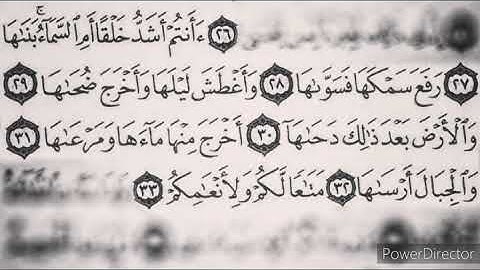 ٢٦ ءَأَنتُمْ أَشَدُّ خَلْقًا أَمِ ٱلسَّمَآءُ ۚ بَنَىٰهَا
٢٧ رَفَعَ سَمْكَهَا فَسَوَّىٰهَا ٢٨ وَأَغْطَشَ لَيْلَهَا وَأَخْرَجَ ضُحَىٰهَا ٢٩
وَٱلْأَرْضَ بَعْدَ ذَٰلِكَ دَحَىٰهَآ ٣٠ أَخْرَجَ مِنْهَا مَآءَهَا وَمَرْعَىٰهَا ٣١
وَٱلْجِبَالَ أَرْسَىٰهَا ٣٢ مَتَٰعًا لَّكُمْ وَلِأَنْعَٰمِكُمْ ٣٣
PowerDirector